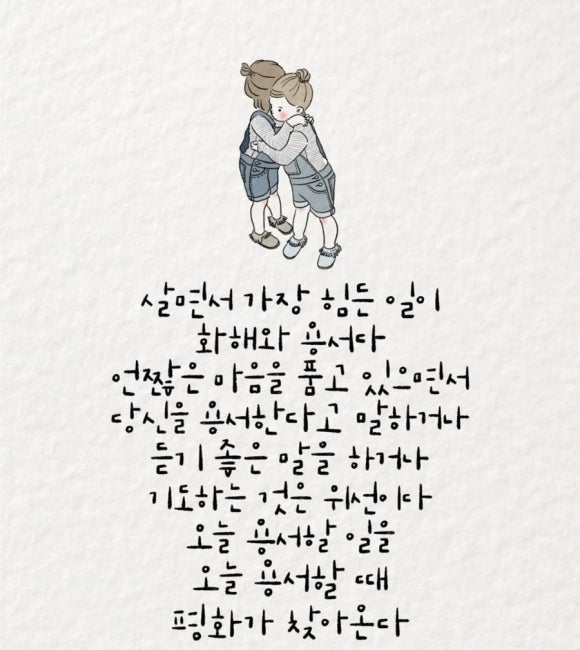 살면서 가장 힘든 일이
화해와 용서다
언짢은 마음을 품고 있으면서
당신을 용서한다고 말하거나
듣기 좋은 말을 하거나
기도하는 것은 위선이다
오늘 용서할 일을
오늘 용서할 때
평화가 찾아온다